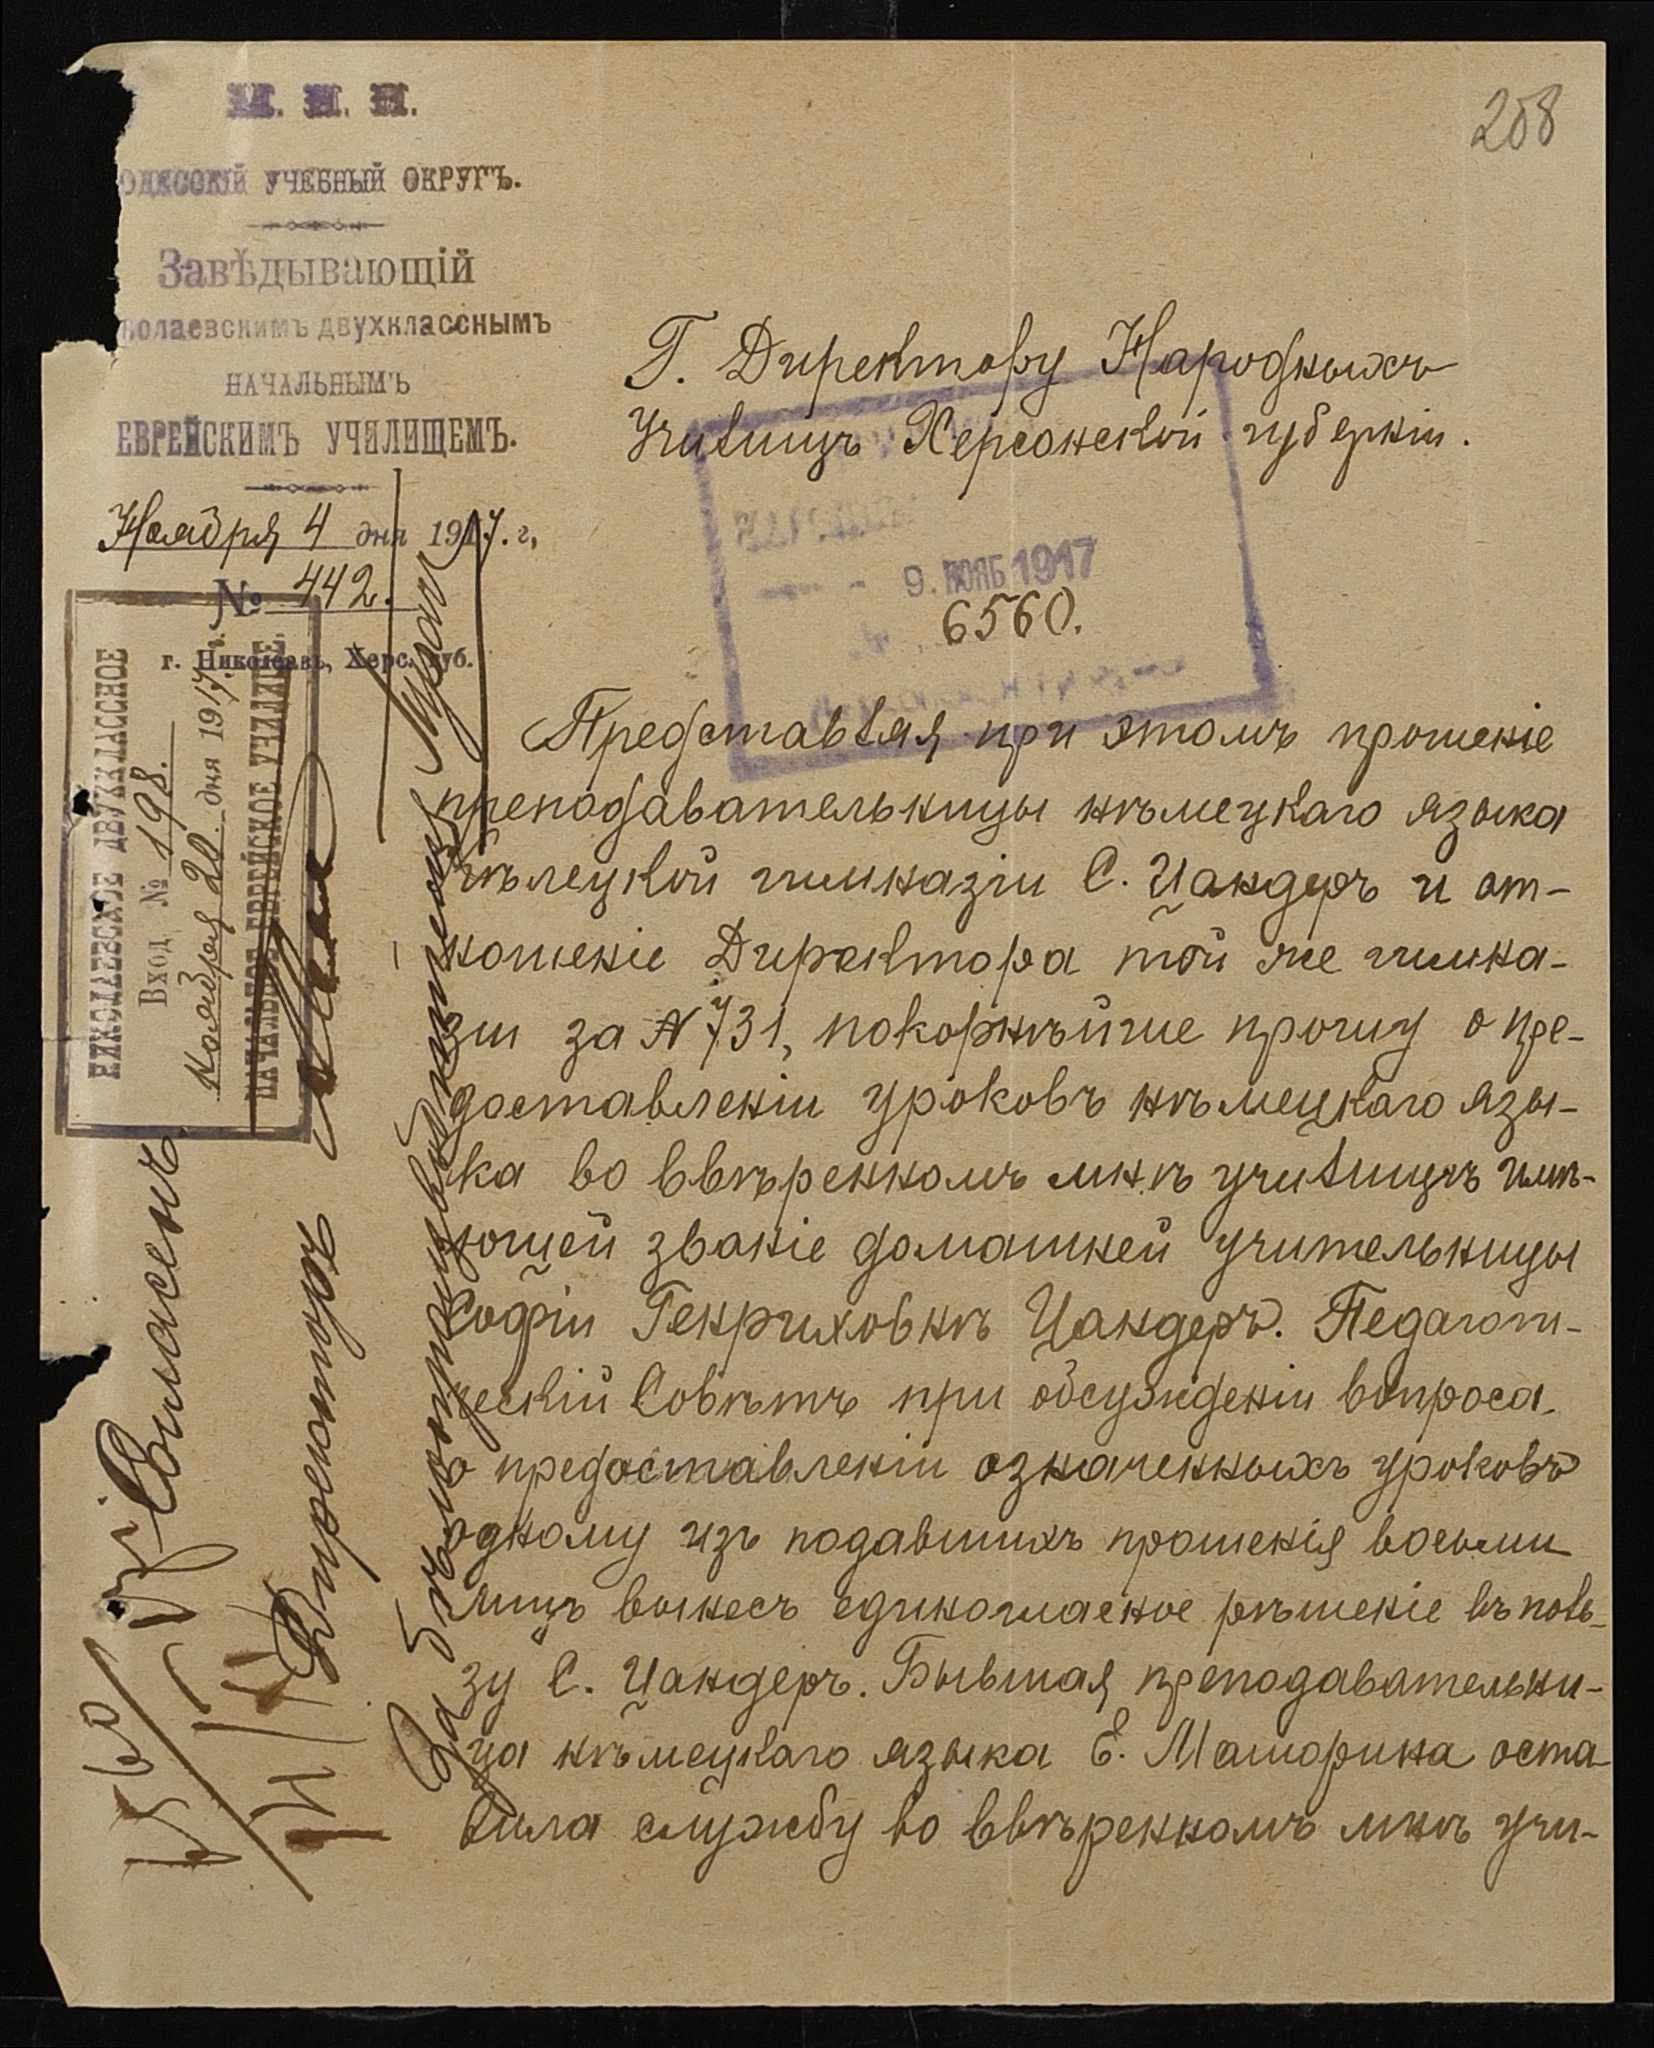 М. Н. П.
208
ОДЕССКІЙ УЧЕБНЫЙ ОКРУГЪ.
Завѣдывающій
колаевскимъ двухкласснымъ
НАЧАЛЬНЫМЪ
ЕВРЕЙСКИМЪ УЧИЛИЩЕМЪ.
Ноября 4 дня 1917. г,
№ 442.
г. Николаевъ, Херс. губ.
Г. Директору Народныхъ
Училищъ Херсонской губерніи.
9. НОЯБ 1917
6560.
НИКОЛАЕВСКОЕ ДВУХКЛАССНОЕ
Вход. № 198.
ноября 20. дня 1917 г.
НАЧАЛЬНОЕ ЕВРЕЙСКОЕ УЧИЛИЩЕ.
Представляя при этомъ прошеніе
преподавательницы нѣмецкаго языка
гимназіи С. Цандеръ и от-
ношеніе Директора той же гимна-
зіи за N 731, покорнѣйше прошу о пре-
доставленіи уроковъ нѣмецкаго язы-
ка во ввѣренномъ мнѣ училищѣ имѣ-
ющей званіе домашней учительницы
Софіи Генриховнѣ Цандеръ. Педагоги-
ческій Совѣтъ при обсужденіи вопроса
о предоставленіи означенныхъ уроковъ
одному изъ подавшихъ прошенія восьми
лицъ вынесъ единогласное рѣшеніе въ поль-
зу С. Цандеръ. Бывшая преподавательни-
ца нѣмецкаго языка Е. Маморина оста-
вила службу во ввѣренномъ мнѣ учи-
6560
Согласенъ.
Директоръ
За